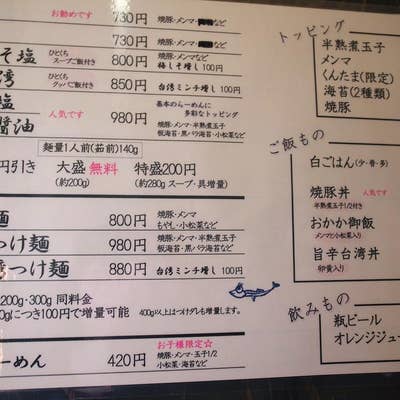 お勧めです
730円 焼豚・メンマ・など
730円 焼豚・メンマ・など
そ塩 ひとくちスープご飯付き 800円 焼豚・メンマなど
梅しそ増し100円
湾 ひとくちクッパご飯付き 850円 台湾ミンチ増し100円
塩
醤油 人気です 980円 基本のらーめんに
多彩なトッピング
焼豚・メンマ・半熟煮玉子
板海苔・黒バラ海苔・小松菜など
麺量1人前(茹前)140g
円引き 大盛無料 特盛200円
(約200g) (約280g スープ・具増量)
麺 800円 焼豚・メンマ
もやし・小松菜など
つけ麺 980円 焼豚・メンマ・半熟煮玉子
板海苔・黒バラ海苔・小松菜など
つけ麺 880円 台湾ミンチ増し100円
200g・300g 同料金
gにつき100円で増量可能 400g以上はつけダレも増量します。
お子様限定☆
ーめん 420円 焼豚・メンマ・玉子1/2
小松菜・海苔など
トッピング
半熟煮玉子
メンマ
くんたま(限定)
海苔(2種類)
焼豚
ご飯もの
白ごはん(少・普・多)
焼豚丼 人気です
半熟煮玉子1/2付き
おかか御飯
メンマと小松菜入り
旨辛台湾丼
卵黄入り
飲みもの
瓶ビール
オレンジジュー